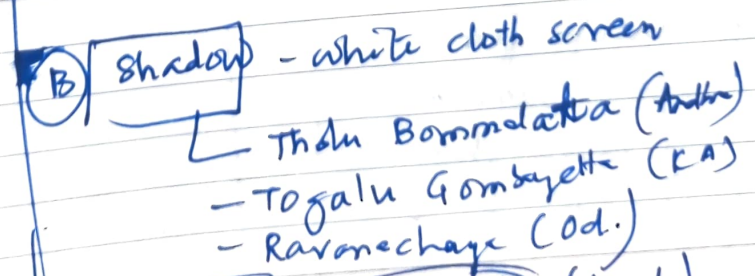 B Shadow - white cloth screen
Tholu Bommalatta (Andhra)
- Togalu Gombayette (KA)
- Ravanachaya (Od.)